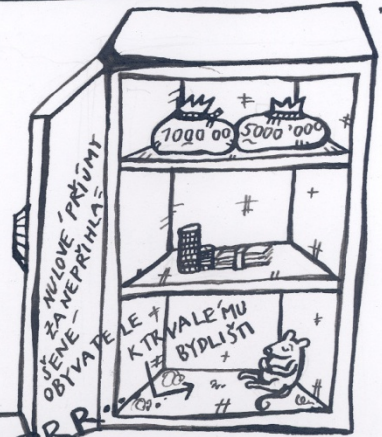 1000'00 5000'000
NULOVÉ PŘÍJMY
ZA NEPŘIHLÁ=
ŠENÉ-
OBYVATELE
K TRVALÉMU
BYDLIŠTI